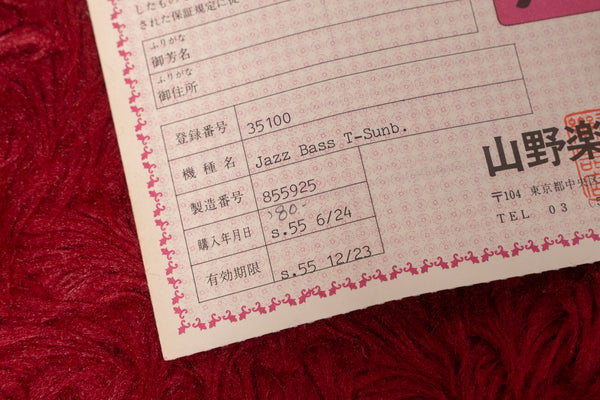 したもの
された保証規定に従
ふりがな
御芳名
ふりがな
御住所
登録番号 35100
機種名 Jazz Bass T-Sunb.
製造番号 855925
'80.
購入年月日 s.55 6/24
有効期限 s.55 12/23
山野楽
〒104 東京都中央区
TEL 03